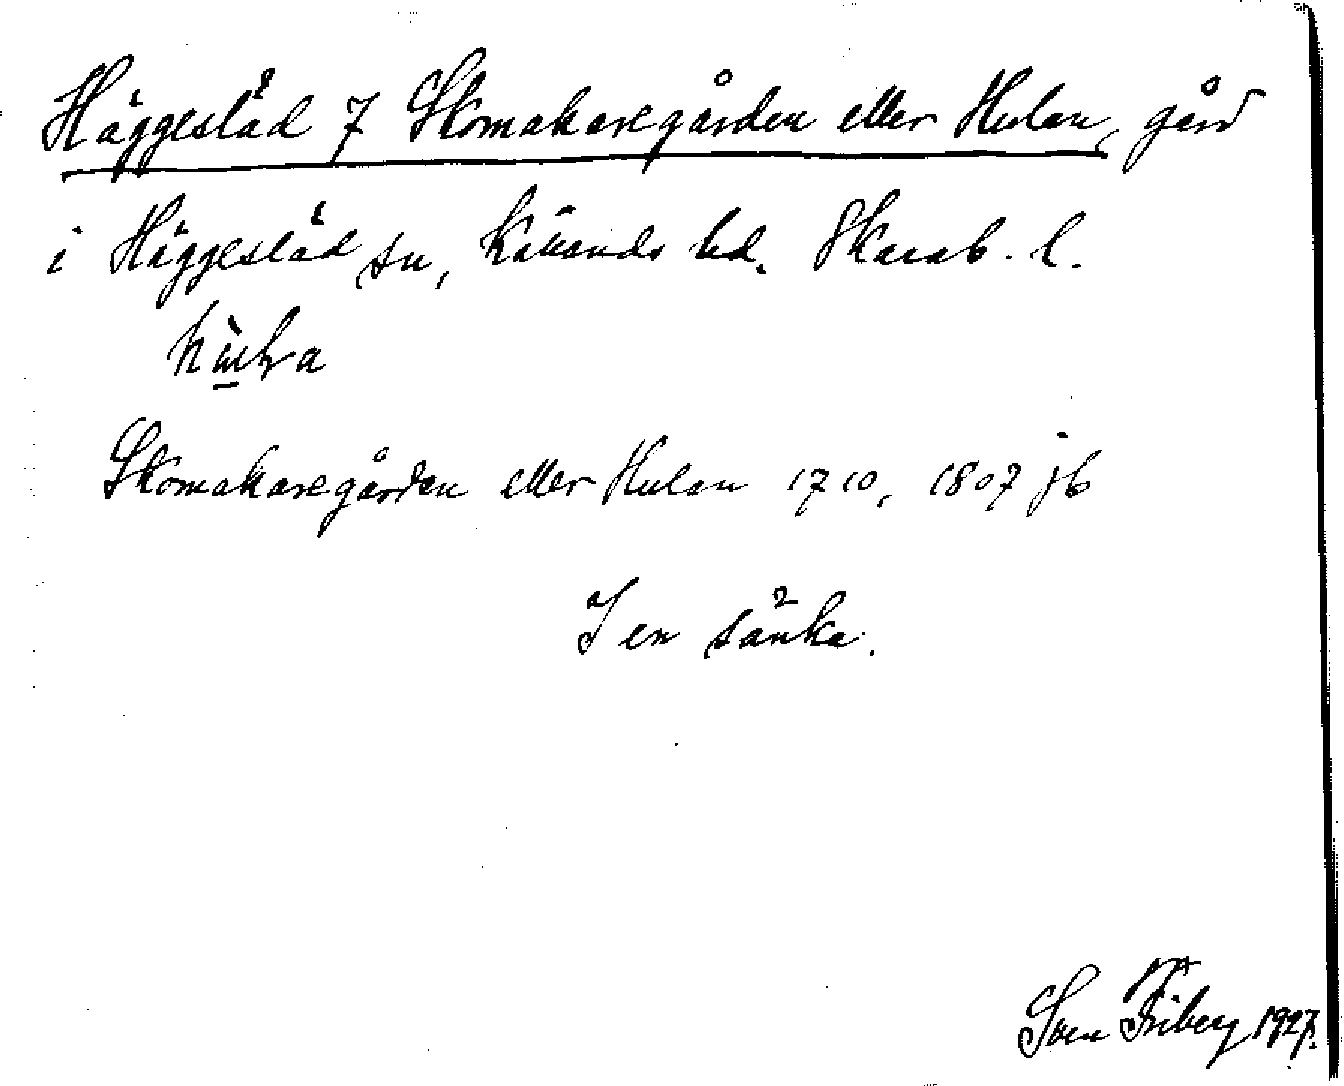 Häggesläd 7 Skomakaregården eller Hulan, gård
i Häggesläd sn, Kållands hd. Skarab. l.
Skomakaregården eller Hulan 1710, 1807 jb
I en sänka.
Sven Friberg 1927.